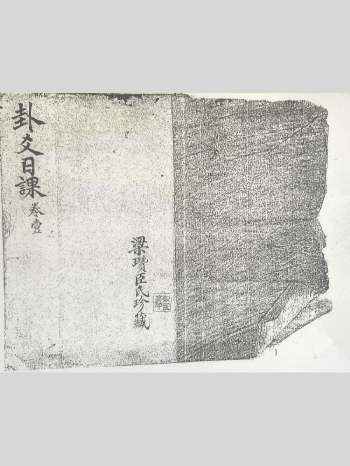 卦爻日課 卷壹
梁瓚臣氏珍藏